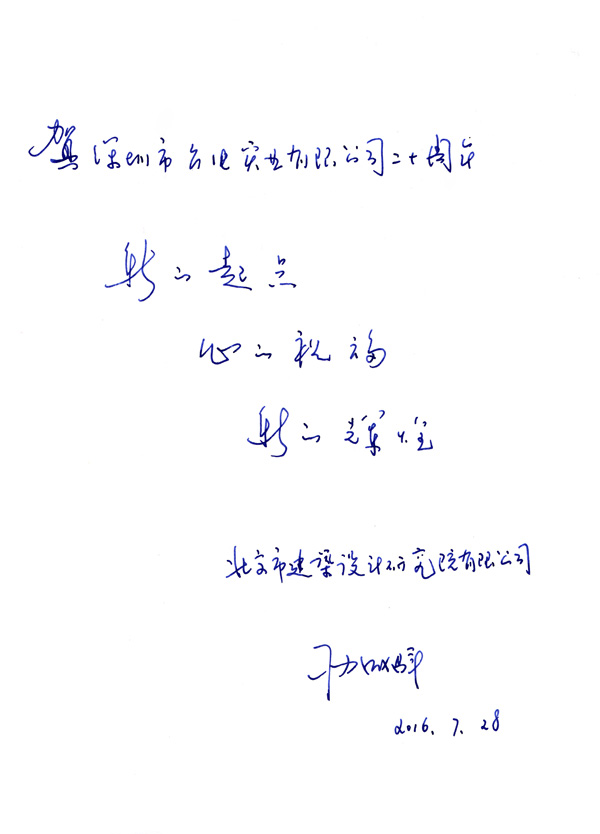 贺深圳市 实业有限公司二十周年
新的起点
心的祝福
新的辉煌
北京市建筑设计研究院有限公司
2016.7.28